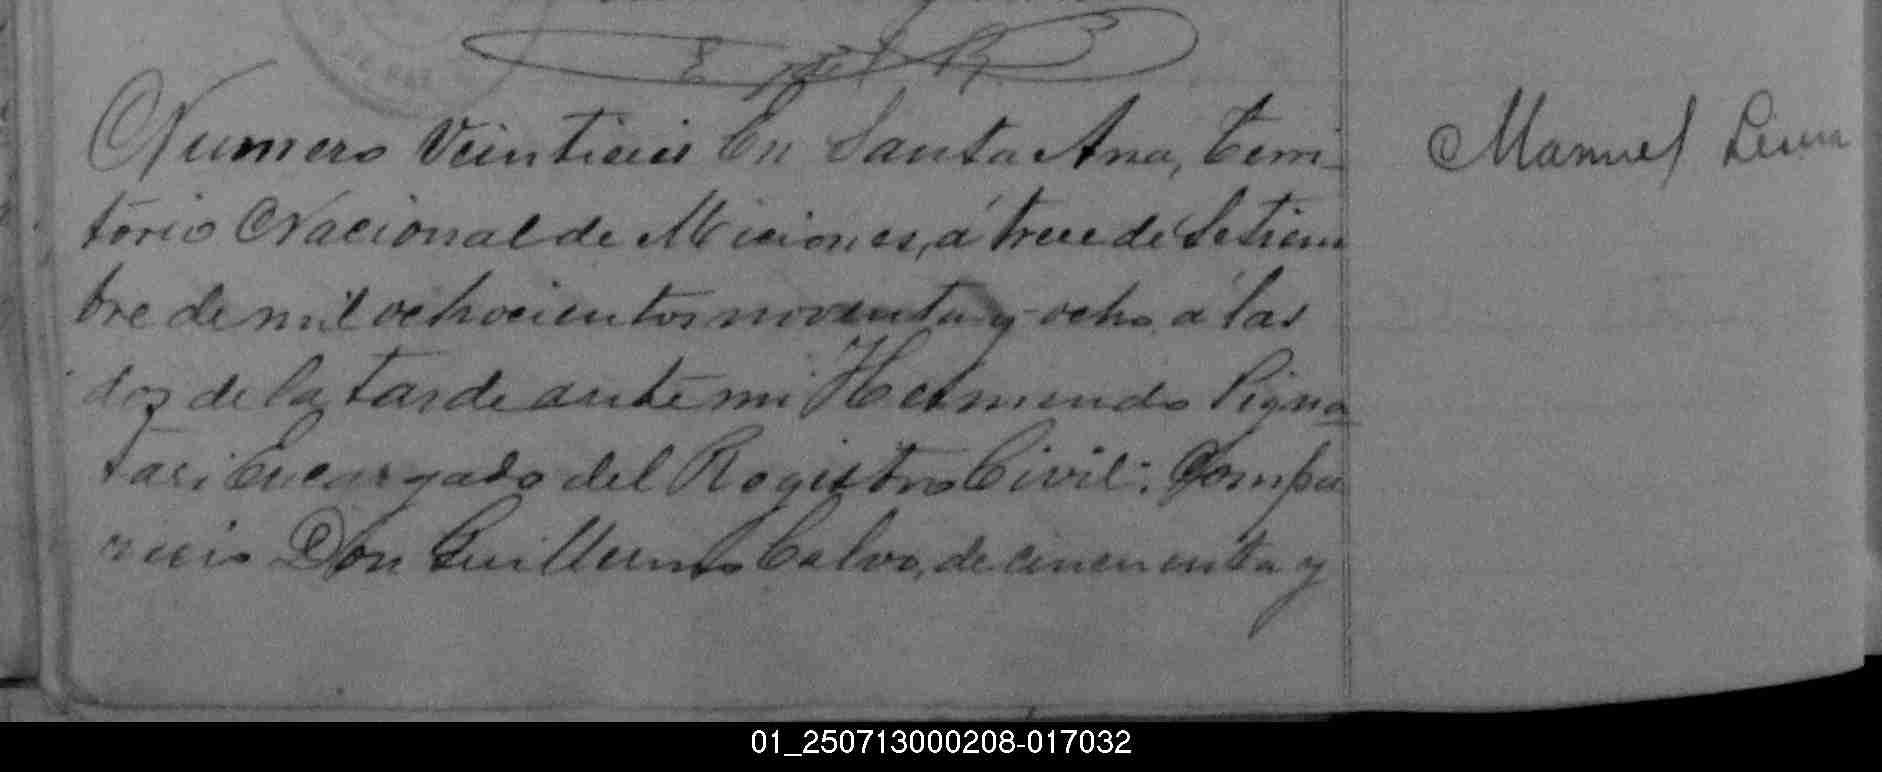 Numero Veintiseis En Santa Ana, Terri-
torio Nacional de Misiones, á trece de Setiem
bre de mil ochocientos noventa y ocho á las
dos de la tarde ante mi Hermindo Pigna
tari Encargado del Registro Civil: Compa
recio Don Guillermo Calvo, de cincuenta y
Manuel
01_250713000208-017032